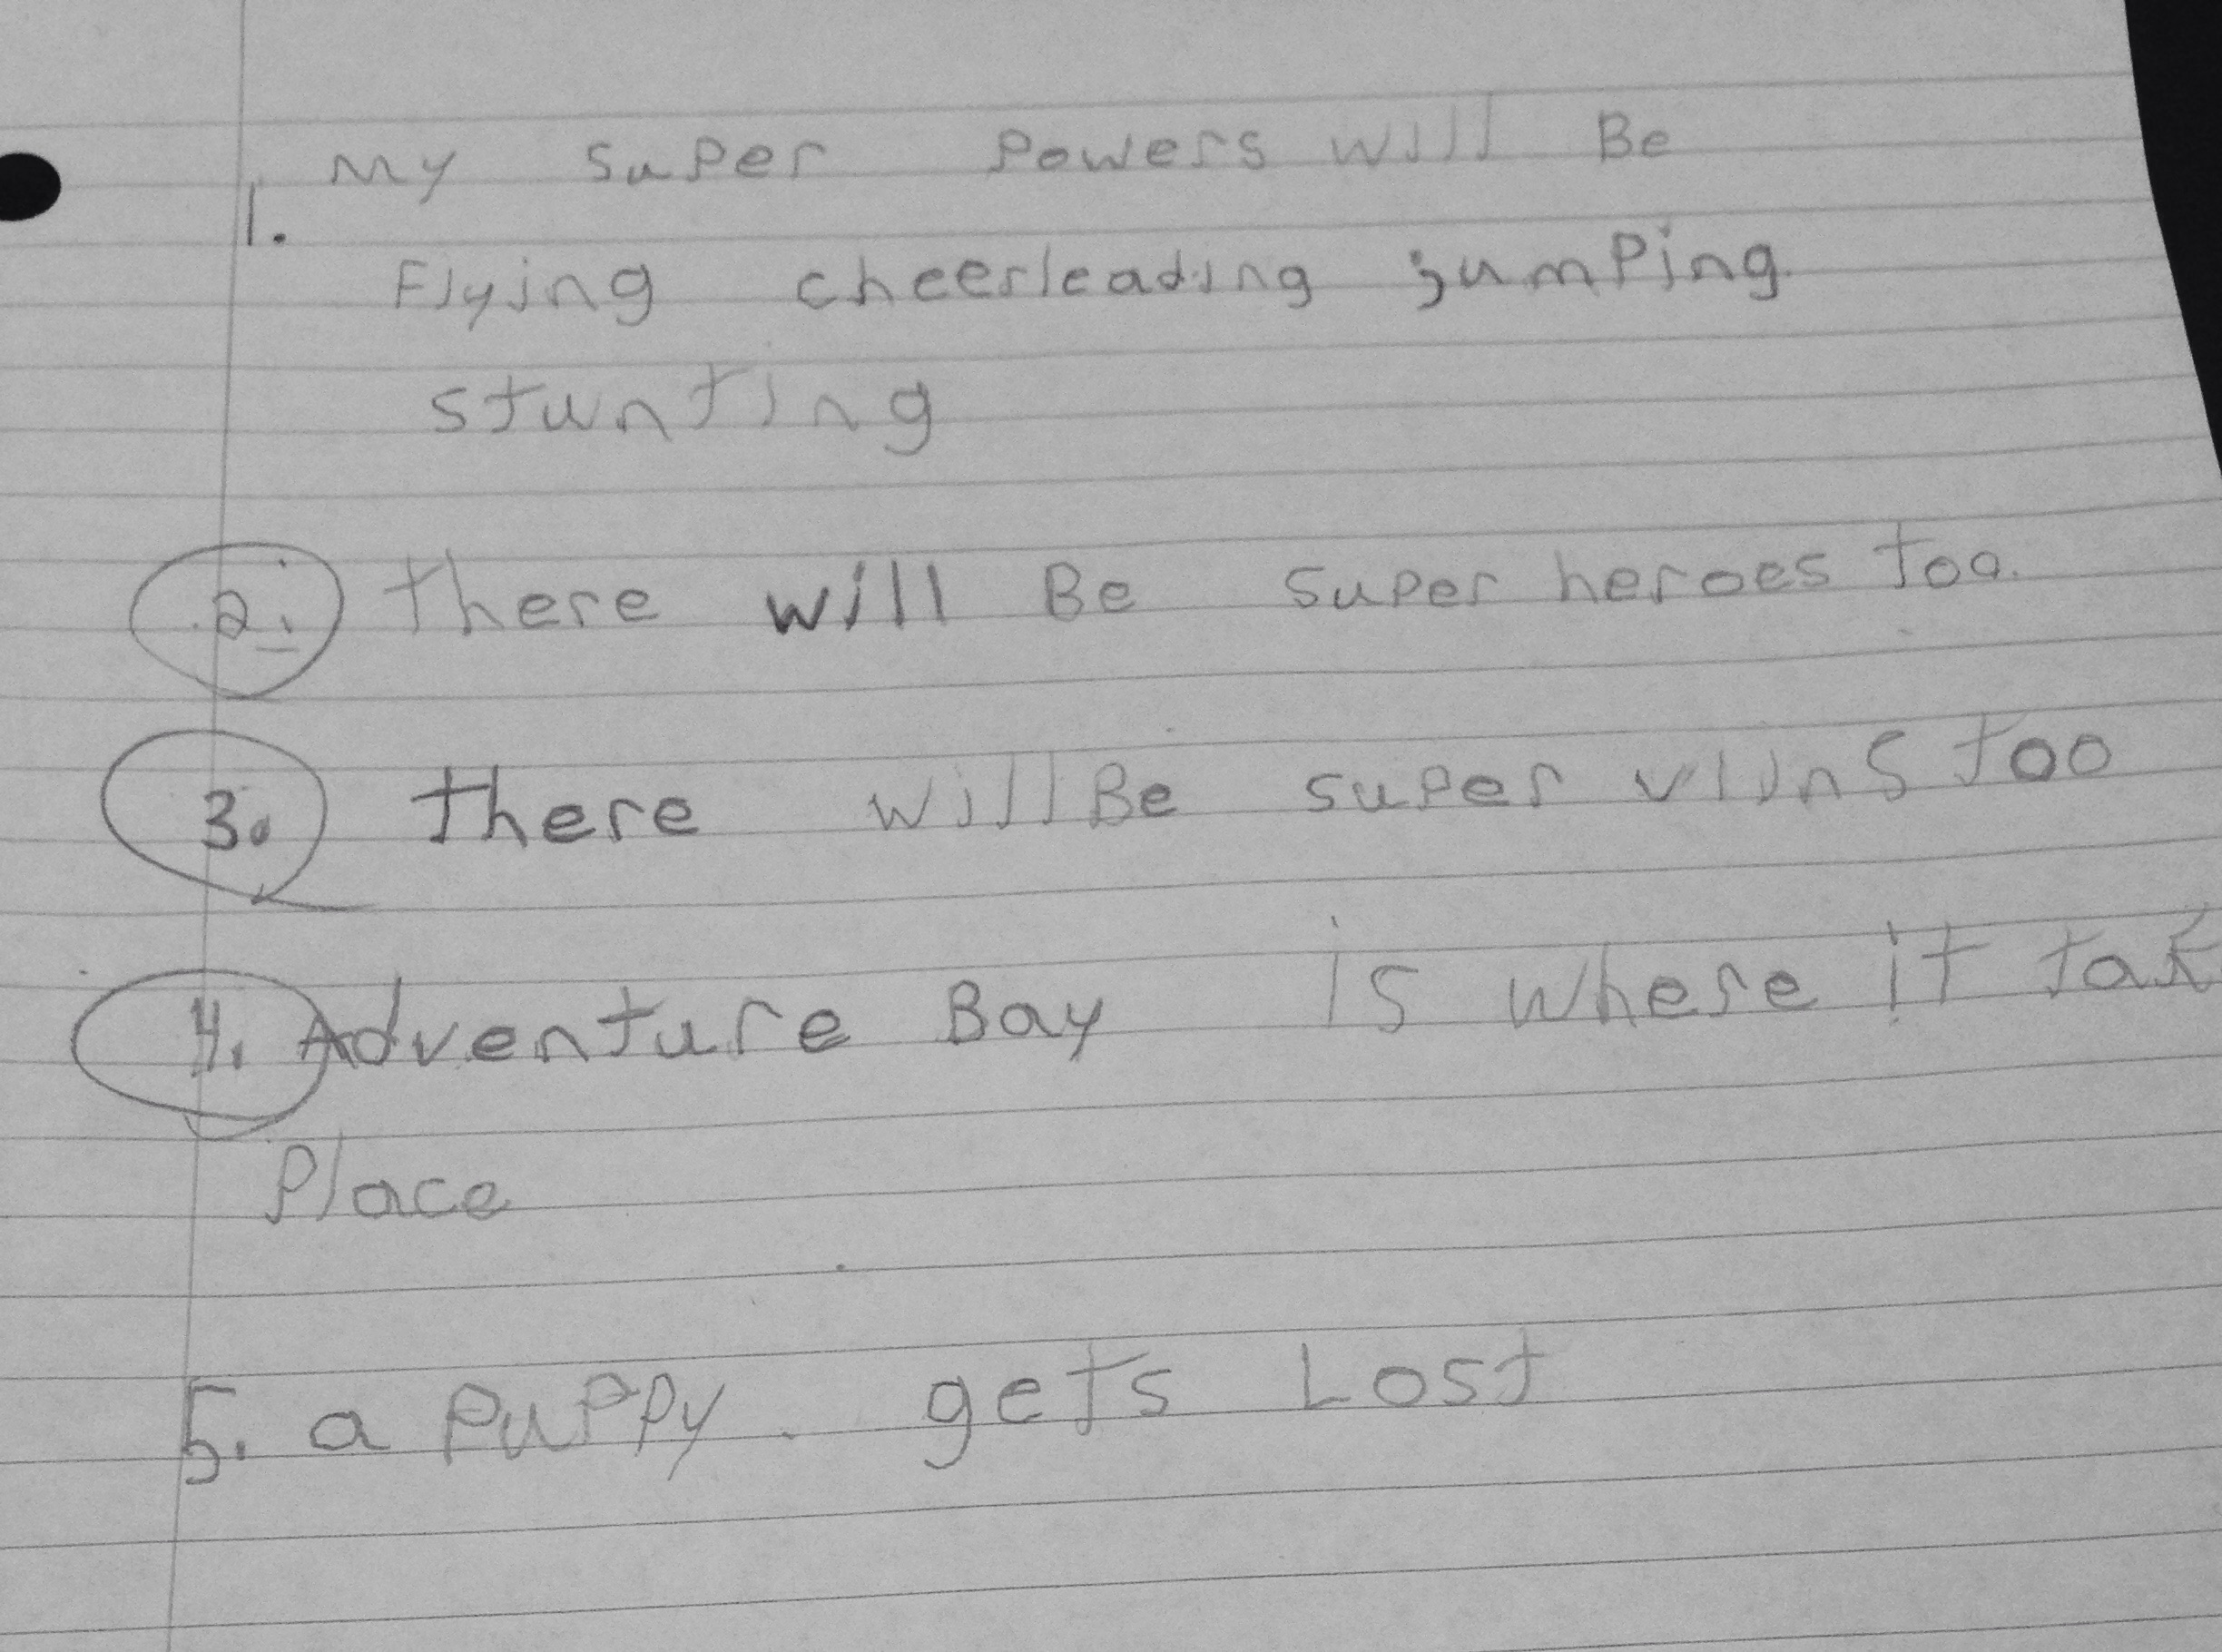 1. My super Powers will Be
Flying cheerleading jumping
stunting
2. there will Be super heroes too.
3. there will Be super viins too
4. Adventure Bay is where it tak
Place
5. a PuPPy gets Lost